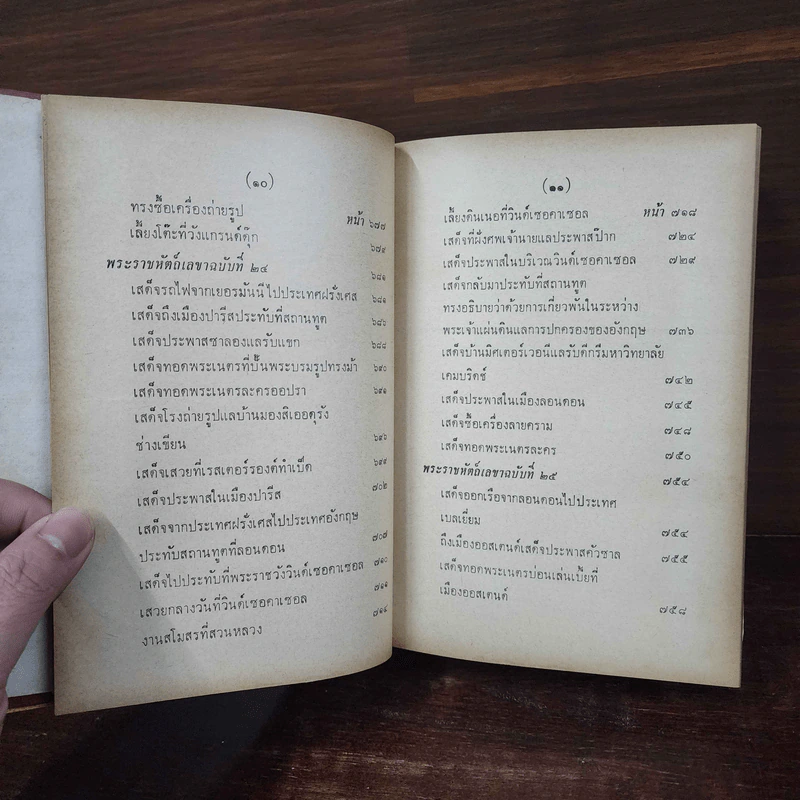 (๑๐)
ทรงซื้อเครื่องถ่ายรูป หน้า ๖๗๘
เลี้ยงโต๊ะที่วังแกรนด์ดุ๊ก ๖๗๙
พระราชหัตถ์เลขาฉบับที่ ๒๔ ๖๘๑
เสด็จรถไฟจากเยอรมันนีไปประเทศฝรั่งเศส ๖๘๑
เสด็จถึงเมืองปารีสประทับที่สถานทูต ๖๘๖
เสด็จประพาสซาลองแลรับแขก ๖๘๘
เสด็จทอดพระเนตรที่ปั้นพระบรมรูปทรงม้า ๖๙๐
เสด็จทอดพระเนตรละครออปรา ๖๙๑
เสด็จโรงถ่ายรูปแลบ้านมองสิเออดุรัง
ช่างเขียน ๖๙๖
เสด็จเสวยที่เรสเตอร์รองต์ทำเป็ด ๖๙๙
เสด็จประพาสในเมืองปารีส ๗๐๒
เสด็จจากประเทศฝรั่งเศสไปประเทศอังกฤษ
ประทับสถานทูตที่ลอนดอน ๗๐๗
เสด็จไปประทับที่พระราชวังวินด์เซอคาเซอล ๗๑๐
เสวยกลางวันที่วินด์เซอคาเซอล ๗๑๑
งานสโมสรที่สวนหลวง ๗๑๔
(๑๑)
เลี้ยงดินเนอที่วินด์เซอคาเซอล หน้า ๗๑๘
เสด็จที่ฝังศพเจ้านายแลประพาสป๊าก ๗๒๔
เสด็จประพาสในบริเวณวินด์เซอคาเซอล ๗๒๙
เสด็จกลับมาประทับที่สถานทูต
ทรงอธิบายว่าด้วยการเกี่ยวพันในระหว่าง
พระเจ้าแผ่นดินแลการปกครองของอังกฤษ ๗๓๖
เสด็จบ้านมิศเตอร์เวอนีแลรับดีกรีมหาวิทยาลัย
เคมบริดช์ ๗๔๒
เสด็จประพาสในเมืองลอนดอน ๗๔๕
เสด็จซื้อเครื่องลายคราม ๗๔๘
เสด็จทอดพระเนตรละคร ๗๕๐
พระราชหัตถ์เลขาฉบับที่ ๒๕ ๗๕๔
เสด็จออกเรือจากลอนดอนไปประเทศ
เบลเยี่ยม ๗๕๔
ถึงเมืองออสเตนด์เสด็จประพาสคัวซาล ๗๕๕
เสด็จทอดพระเนตรบ่อนเล่นเบี้ยที่
เมืองออสเตนด์ ๗๕๘